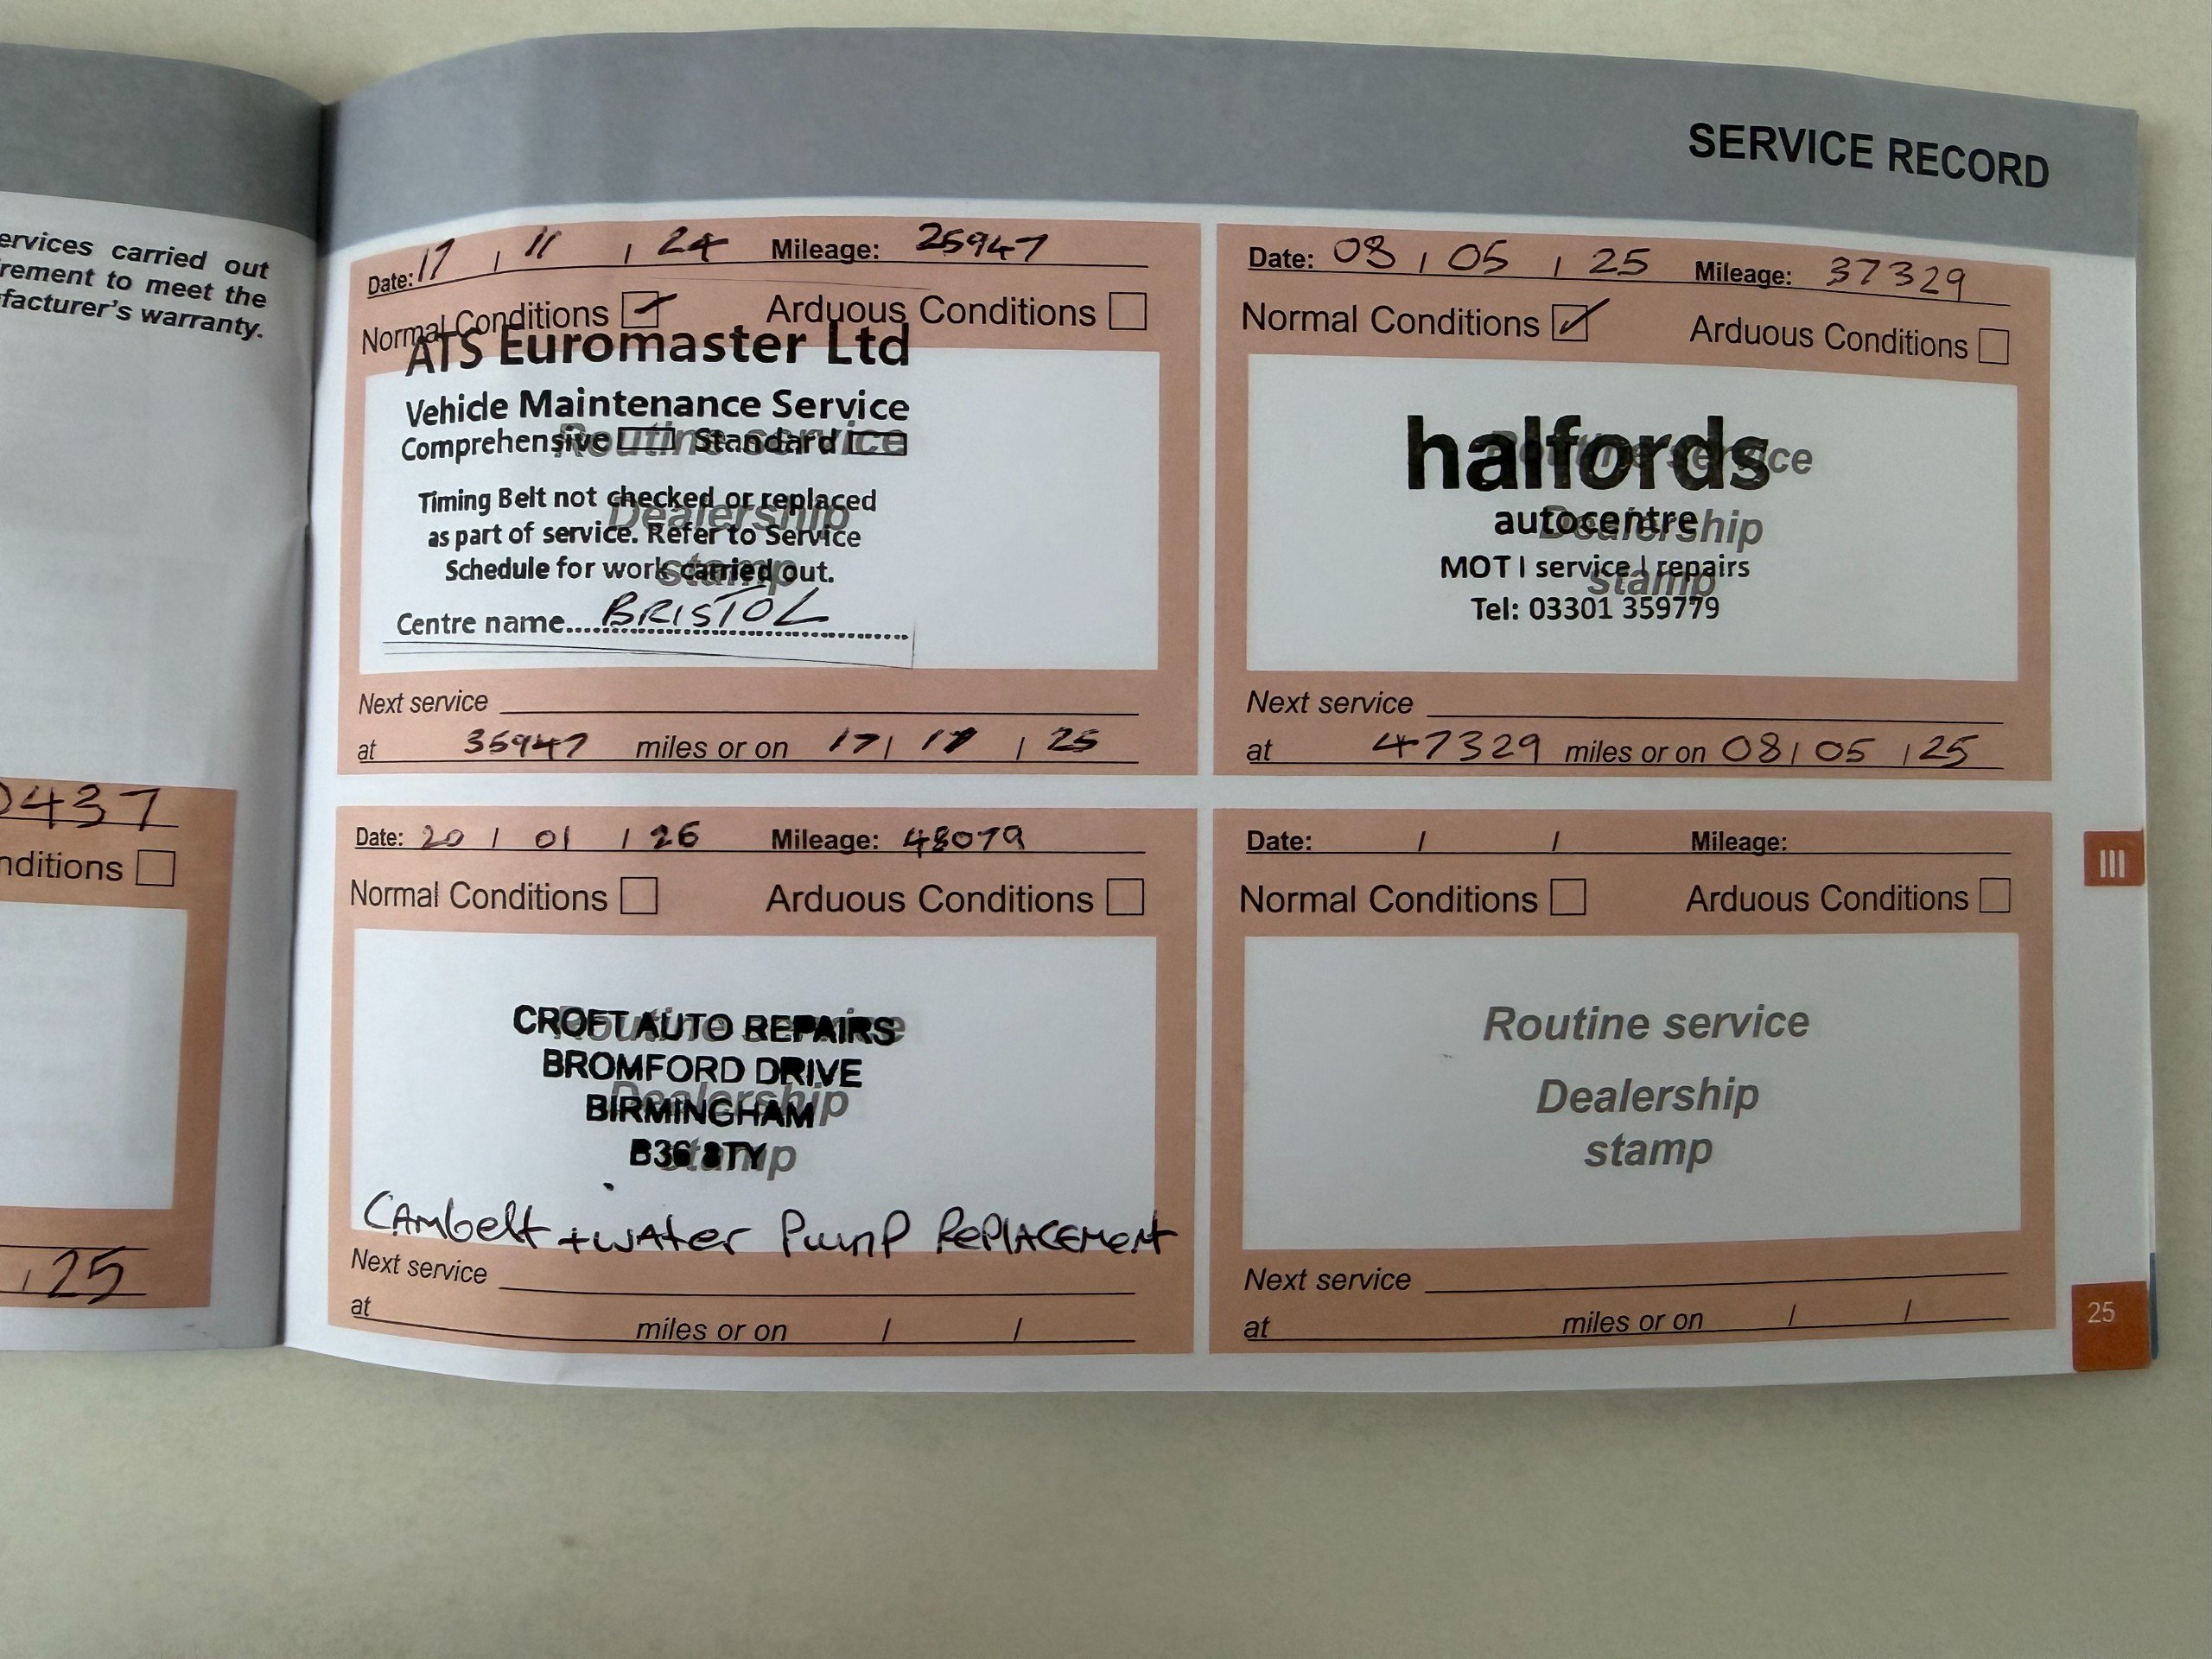 ervices carried out
rement to meet the
facturer's warranty.
0437
nditions
/ 25
SERVICE RECORD
Date: 17 / 11 / 24 Mileage: 25947
Normal Conditions Arduous Conditions
ATS Euromaster Ltd
Vehicle Maintenance Service
Comprehensive Standard
Routine service
Timing Belt not checked or replaced
Dealership
as part of service. Refer to Service
Schedule for work carried out.
stamp
Centre name.....BRISTOL.....
Next service
at 35947 miles or on 17 / / 25
Date: 08 / 05 / 25 Mileage: 37329
Normal Conditions Arduous Conditions
halfords
Routine service
autocentre
Dealership
MOT | service | repairs
stamp
Tel: 03301 359779
Next service
at 47329 miles or on 08 / 05 / 25
Date: 20 / 01 / 26 Mileage: 48079
Normal Conditions Arduous Conditions
CROFT AUTO REPAIRS
Routine service
BROMFORD DRIVE
Dealership
BIRMINGHAM
B36 8TY
stamp
CAmbelt + WAter PumP RePLACEMent
Next service
at miles or on / /
Date: / / Mileage:
Normal Conditions Arduous Conditions
Routine service
Dealership
stamp
Next service
at miles or on / /
III
25